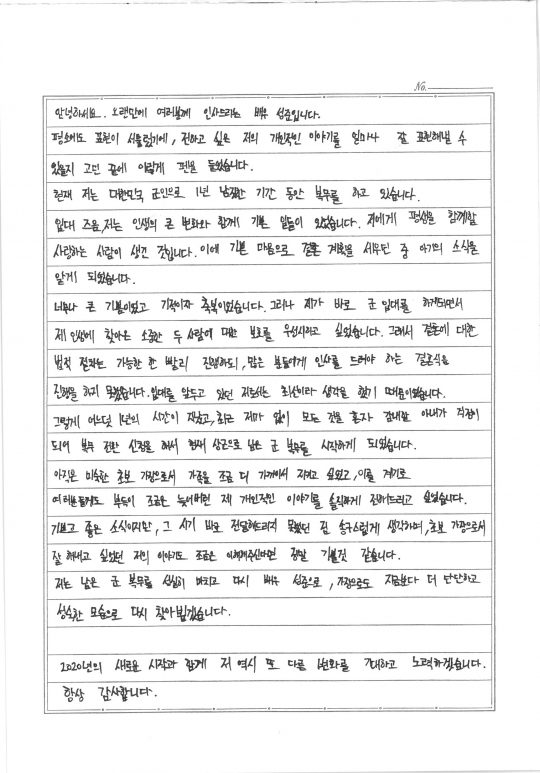 No.
안녕하세요. 오랜만에 여러분께 인사드리는 배우 성준입니다.
평소에도 표현이 서툴렀기에, 전하고 싶은 저의 개인적인 이야기를 얼마나 잘 표현해낼 수
있을지 고민 끝에 이렇게 펜을 들었습니다.
현재 저는 대한민국 군인으로 1년 남짓한 기간 동안 복무를 하고 있습니다.
입대 즈음, 저는 인생의 큰 변화와 함께 기쁜 일들이 있었습니다. 저에게 평생을 함께할
사랑하는 사람이 생긴 것입니다. 이에 기쁜 마음으로 결혼 계획을 세우던 중 아기의 소식을
알게 되었습니다.
너무나 큰 기쁨이었고 기적이자 축복이었습니다. 그러나 제가 바로 군 입대를 하게되면서
제 인생에 찾아온 소중한 두 사람에 대한 보호를 우선시하고 싶었습니다. 그래서 결혼에 대한
법적 절차는 가능한 한 빨리 진행하되, 많은 분들에게 인사를 드려야 하는 결혼식은
진행을 하지 못했습니다. 입대를 앞두고 있던 저로서는 최선이라 생각을 했기 때문이었습니다.
그렇게 어느덧 1년의 시간이 지났고, 최근 제가 없이 모든 것을 혼자 감내할 아내가 걱정이
되어 복무 전환 신청을 해서 현재 상근으로 남은 군 복무를 시작하게 되었습니다.
아직은 미숙한 초보 가장으로서 가족을 조금 더 가까이서 지키고 싶었고, 이를 계기로
여러분들께도 부득이 조금은 늦어버린 제 개인적인 이야기를 솔직하게 전해드리고 싶었습니다.
기쁘고 좋은 소식이지만, 그 시기 바로 전달해드리지 못했던 점 송구스럽게 생각하며, 초보 가장으로서
잘 해내고 싶었던 저의 이야기도 조금은 이해해주신다면 정말 기쁠것 같습니다.
저는 남은 군 복무를 성실히 마치고 다시 배우 성준으로, 가장으로도 지금보다 더 단단하고
성숙한 모습으로 다시 찾아뵙겠습니다.
2020년의 새로운 시작과 함께 저 역시 또 다른 변화를 기대하고 노력하겠습니다.
항상 감사합니다.